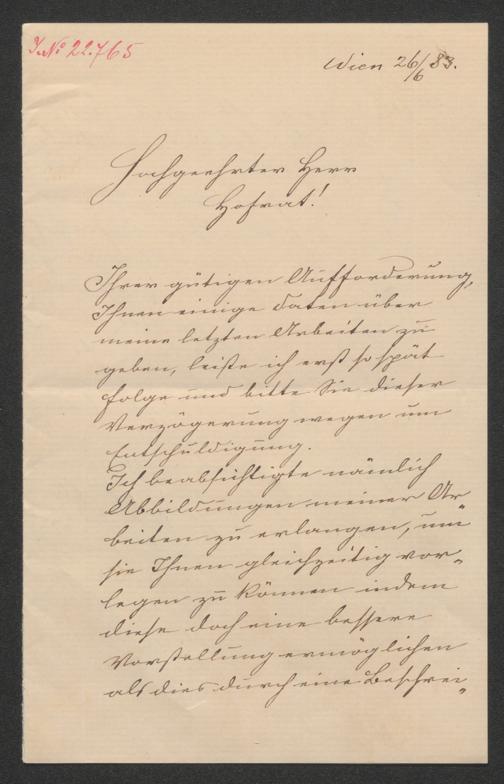 J.No 22.765
Wien 26/6 83.
Hochgeehrter Herr
Hofrat!
Ihrer gütigen Aufforderung,
Ihnen einige Daten über
meine letzten Arbeiten zu
geben, leiste ich erst so spät
Folge und bitte Sie dieser
Verzögerung wegen um
Entschuldigung.
Ich beabsichtigte nämlich
Abbildungen meiner Ar
beiten zu erlangen, um
sie Ihnen gleichzeitig vor-
legen zu können indem
diese doch eine bessere
Vorstellung ermöglichen
als dies durch eine Beschrei-